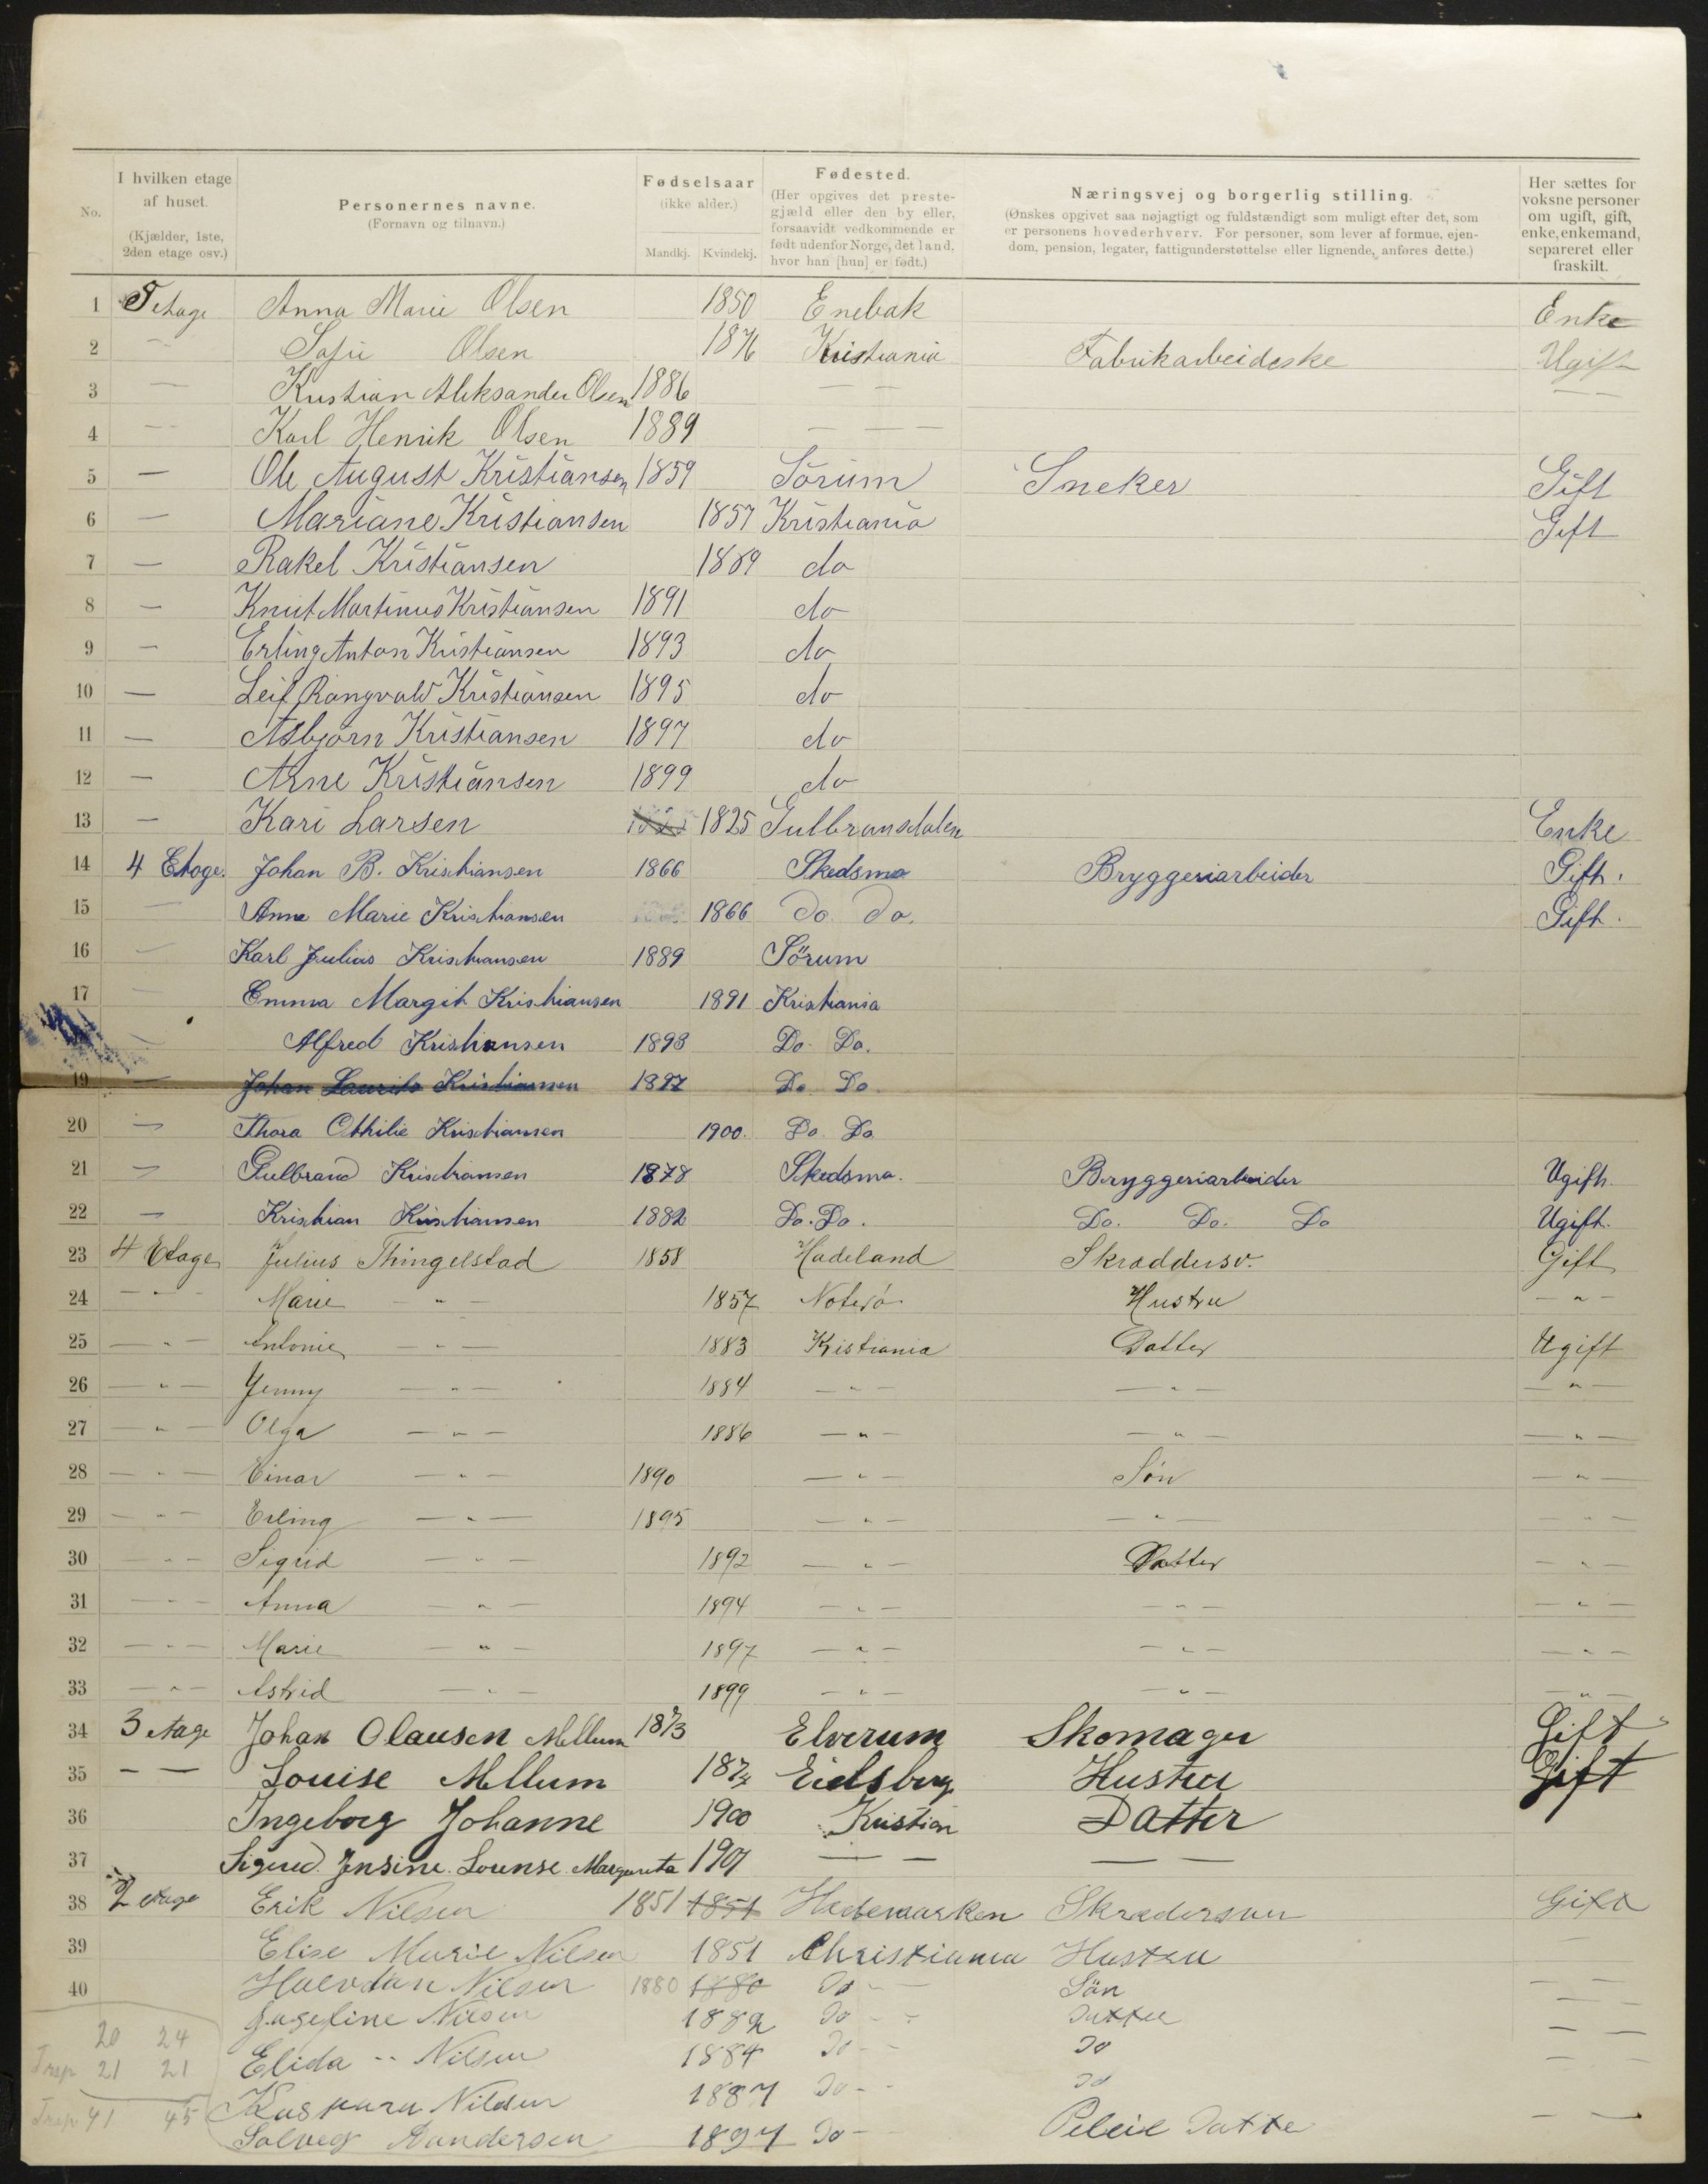 No. I hvilken etage af huset. (Kjælder, 1ste, 2den etage osv.) Personernes navne. (Fornavn og tilnavn.) Fødselsaar (ikke alder.) Mandkj. Kvindekj. Fødested. (Her opgives det prestegjæld eller den by eller, forsaavidt vedkommende er født udenfor Norge, det land, hvor han [hun] er født.) Næringsvej og borgerlig stilling. (Ønskes opgivet saa nøjagtigt og fuldstændigt som muligt efter det, som er personens hovederhverv. For personer, som lever af formue, ejendom, pension, legater, fattigunderstøttelse eller lignende, anføres dette.) Her sættes for voksne personer om ugift, gift, enke, enkemand, separeret eller fraskilt.
1 5 etage Anna Marie Olsen 1850 Enebak Enke
2 — Sofie Olsen 1876 Kristiania Fabrikarbeideske Ugift
3 — Kristian Aleksander Olsen 1886 — — — —
4 — Karl Henrik Olsen 1889 — — —
5 — Ole August Kristiansen 1859 Sörum Sneker Gift
6 — Mariane Kristiansen 1857 Kristiania Gift
7 — Rakel Kristiansen 1889 do
8 — Knut Martinus Kristiansen 1891 do
9 — Erling Anton Kristiansen 1893 do
10 — Leif Rangvald Kristiansen 1895 do
11 — Asbjørn Kristiansen 1897 do
12 — Arne Kristiansen 1899 do
13 — Kari Larsen 1825 Gulbransdalen Enke
14 4 Etage. Johan B. Kristiansen 1866 Skedsmo Bryggeriarbeider Gift.
15 — Anne Marie Kristiansen 1866 Do Do. Gift.
16 — Karl Julius Kristiansen 1889 Sörum
17 — Emma Margit Kristiansen 1891 Kristiania
— Alfred Kristiansen 1893 Do Do.
19 — Johan Laurits Kristiansen 1897 Do Do.
20 — Thora Othilie Kristiansen 1900. Do Do.
21 — Gulbrand Kristiansen 1878 Skedsmo. Bryggeriarbeider Ugift.
22 — Kristian Kristiansen 1882 Do. Do. Do. Do. Do Ugift.
23 4 Etage Julius Thingelstad 1858 Hadeland Skræddersv. Gift
24 — " — Marie — " — 1857 Noterö Hustru — " —
25 — " — Antonie — " — 1883 Kristiania Datter Ugift
26 — " — Jenny — " — 1884 — " — — " — — " —
27 — " — Olga — " — 1886 — " — — " — — " —
28 — " — Einar — " — 1890 — " — Søn — " —
29 — " — Erling — " — 1895 — " — — " — — " —
30 — " — Sigrid — " — 1892 — " — Datter — " —
31 — " — Anna — " — 1894 — " — — " — — " —
32 — " — Marie — " — 1897 — " — — " — — " —
33 — " — Astrid — " — 1899 — " — — " — — " —
34 3 etage Johan Olausen Mellum 1873 Elverum Skomager Gift
35 — — Louise Mellum 1874 Eidsberg Hustru Gift
36 Ingeborg Johanne 1900 Kristian Datter
37 Sigrid Jensine Lounse Margareta 1901 — — — —
38 2 etage Erik Nilsen 1851 1851 Hedemarken Skrædersven Gift
39 Elise Marie Nilsen 1851 Christiania Hustru —
40 Halvdan Nilsen 1880 1880 Do — Sön — —
Josefine Nilsen 1882 Do - - Datter — —
20 24
Elida -- Nilsen 1884 Do - - Do — —
21 21
Kaspara Nilsen 1887 Do - - Do — —
41 45
Solveg Aandersen 1897 Do - Pleie Datte — —